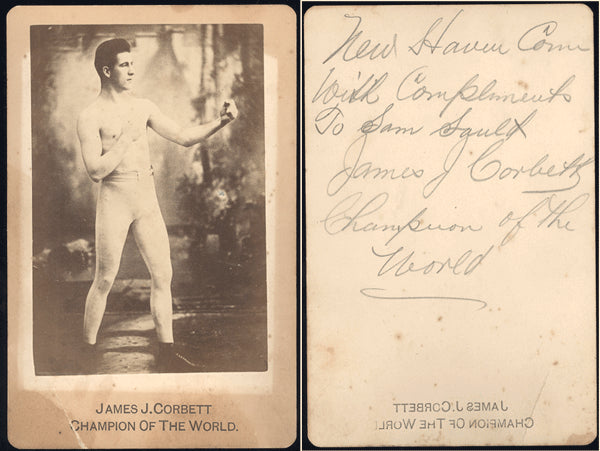 JAMES J. CORBETT
CHAMPION OF THE WORLD.
New Haven Conn
With Compliments
To Sam Sault
James J Corbett
Champion of the
World
JAMES J. CORBETT
CHAMPION OF THE WORL